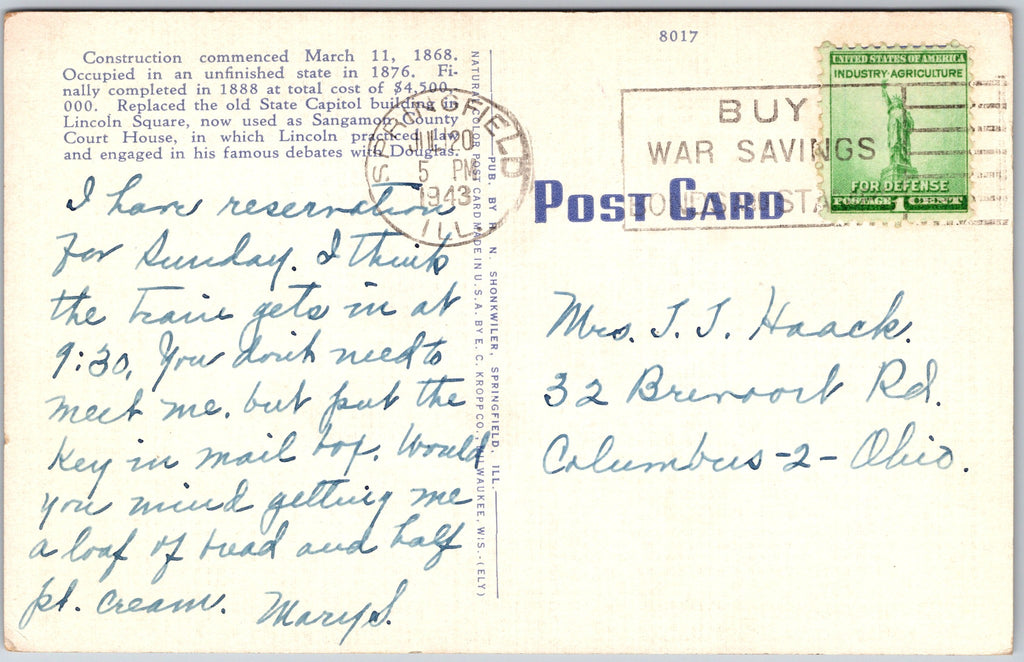 8017
Construction commenced March 11, 1868.
Occupied in an unfinished state in 1876. Fi-
nally completed in 1888 at total cost of $4,500,
000. Replaced the old State Capitol building in
Lincoln Square, now used as Sangamon County
Court House, in which Lincoln practiced law
and engaged in his famous debates with Douglas.
SPRINGFIELD
JUL 20
5 PM
1943
ILL
BUY
WAR SAVINGS
BONDS STA
UNITED STATES OF AMERICA
INDUSTRY AGRICULTURE
FOR DEFENSE
POSTAGE 1 CENT
POST CARD
I have reservation
for Sunday. I think
the train gets in at
9:30. You don't need to
meet me. but put the
key in mail box. Would
you mind getting me
a loaf of bread and half
pt. cream. Mary S.
NATURAL COLOR POST CARD MADE IN U.S.A. BY E. C. KROPP CO., MILWAUKEE, WIS.-(ELY)
PUB. BY H. N. SHONKWILER, SPRINGFIELD, ILL.
Mrs. J. J. Haack.
32 Brevoort Rd.
Columbus-2-Ohio.